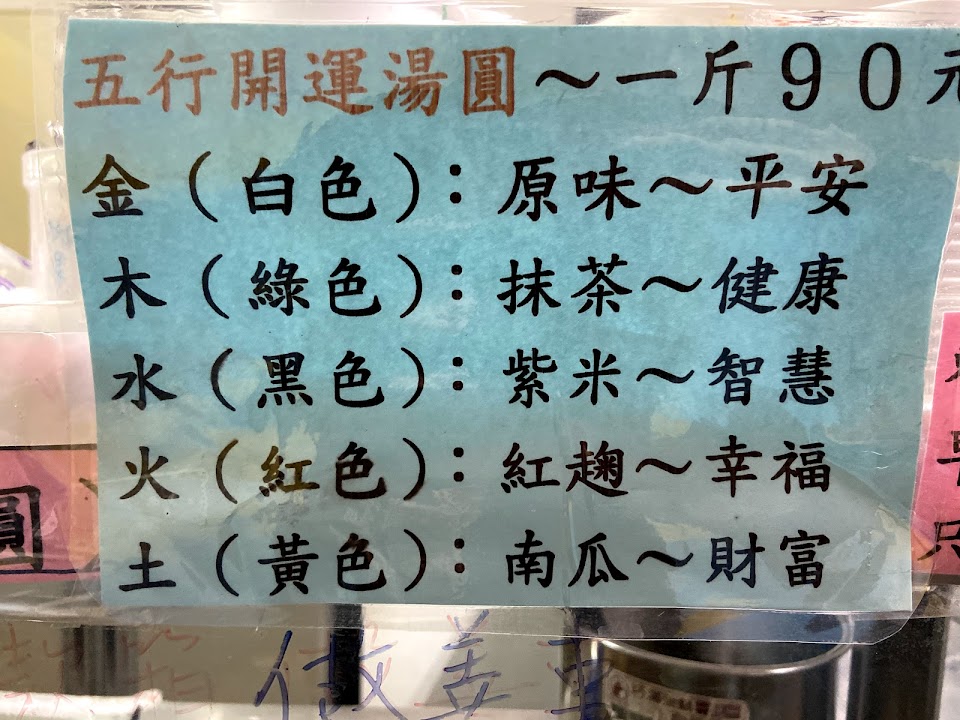 五行開運湯圓～一斤９０元
金（白色）：原味～平安
木（綠色）：抹茶～健康
水（黑色）：紫米～智慧
火（紅色）：紅麴～幸福
土（黃色）：南瓜～財富
圓
只
做善事